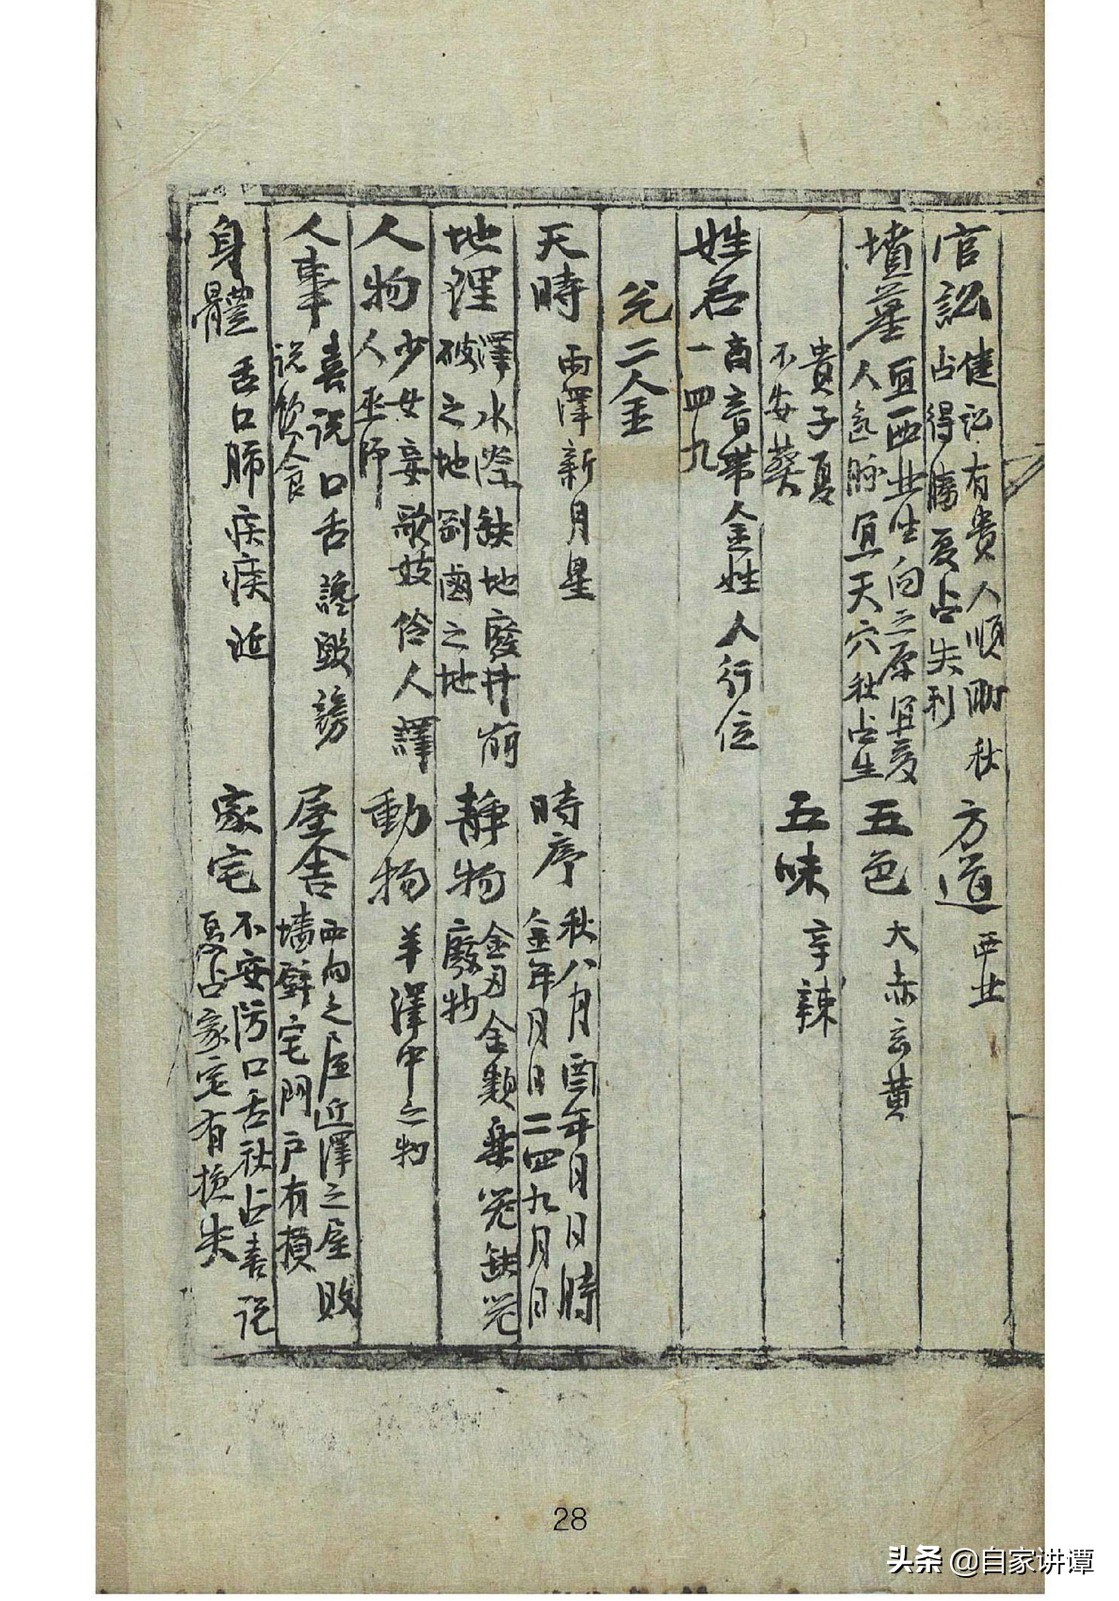 官訟 健訟有貴人順助秋
占得勝夏占失利
方道 西北
墳墓 宜西北坐向之原宜受
人氣脉宜天穴秋占生
五色 大赤玄黃
貴子夏
不安葬
五味 辛辣
姓名 商音帶金姓人行位
一四九
兌二金
天時 雨澤新月星
時序 秋八月酉年月日時
金年月日二四九月日
地理 澤水際缺地廢井崩
破之地剛鹵之地
静物 金刃金類樂器缺器
廢物
人物 少女妾歌妓伶人譯
人巫师
動物 羊澤中之物
人事 喜说口舌讒毀謗
说飲食
屋舍 西向之屋近澤之屋敗
墻壁宅門户有損
身體 舌口肺疾痰涎
家宅 不安防口舌秋占喜说
夏占家宅有損失
28
头条 @自家讲谭